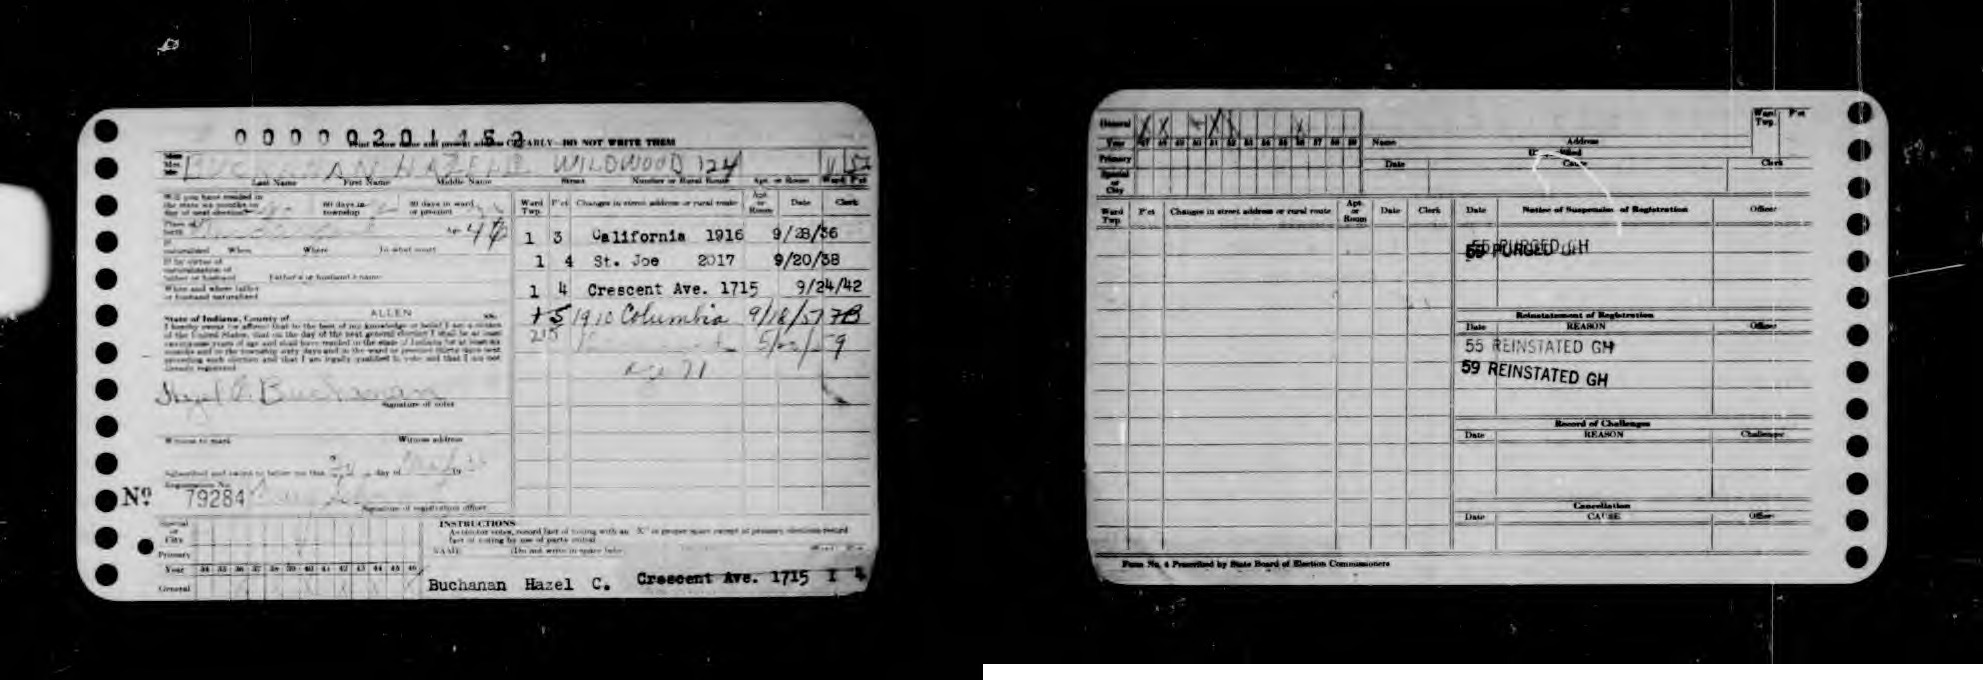 0000020145
Print below name and present address CLEARLY—DO NOT WRITE THEM
BUCHANAN HAZEL C. WILDWOOD 124
Last Name First Name Middle Name Street Number or Rural Route Apt. or Room Ward P'ct
Will you have resided in
the state six months on
day of next election 60 days in township 30 days in ward or precinct
Place of birth Age
If naturalized When Where In what court
If by virtue of
naturalization of
father or husband Father's or husband's name
When and where father
or husband naturalized
State of Indiana, County of ALLEN ss:
I hereby swear (or affirm) that to the best of my knowledge or belief I am a citizen
of the United States, that on the day of the next general election I shall be at least
twenty-one years of age and shall have resided in the state of Indiana for at least six
months and in the township sixty days and in the ward or precinct thirty days next
preceding such election and that I am legally qualified to vote and that I am not
already registered.
Hazel C. Buchanan
Signature of voter
Witness to mark Witness address
Subscribed and sworn to before me this day of 19
Registration No.
No. 79284
Signature of registration officer
Ward Twp. P'ct Changes in street address or rural route Apt. or Room Date Clerk
1 3 California 1916 9/28/36
1 4 St. Joe 2017 9/20/38
1 4 Crescent Ave. 1715 9/24/42
1 5 1910 Columbia 9/18/51 7B
215
Special or City
Primary
Year 34 35 36 37 38 39 40 41 42 43 44 45 46
General
INSTRUCTIONS
As elector votes, record fact of voting with an "X" in proper space except at primary election record
fact of voting by use of party initial
NAME (Do not write in space below)
Buchanan Hazel C. Crescent Ave. 1715 I 4
General X X X X X
Year 47 48 49 50 51 52 53 54 55 56 57 58 59
Primary
Special or City
Name Address Ward Twp. P'ct
Date Cause Clerk
Ward Twp. P'ct Changes in street address or rural route Apt. or Room Date Clerk
Date Notice of Suspension of Registration Officer
55 PURGED GH
59 PURGED GH
Reinstatement of Registration
Date REASON Officer
55 REINSTATED GH
59 REINSTATED GH
Record of Challenges
Date REASON Challenger
Cancellation
Date CAUSE Officer
Form No. 4 Prescribed by State Board of Election Commissioners